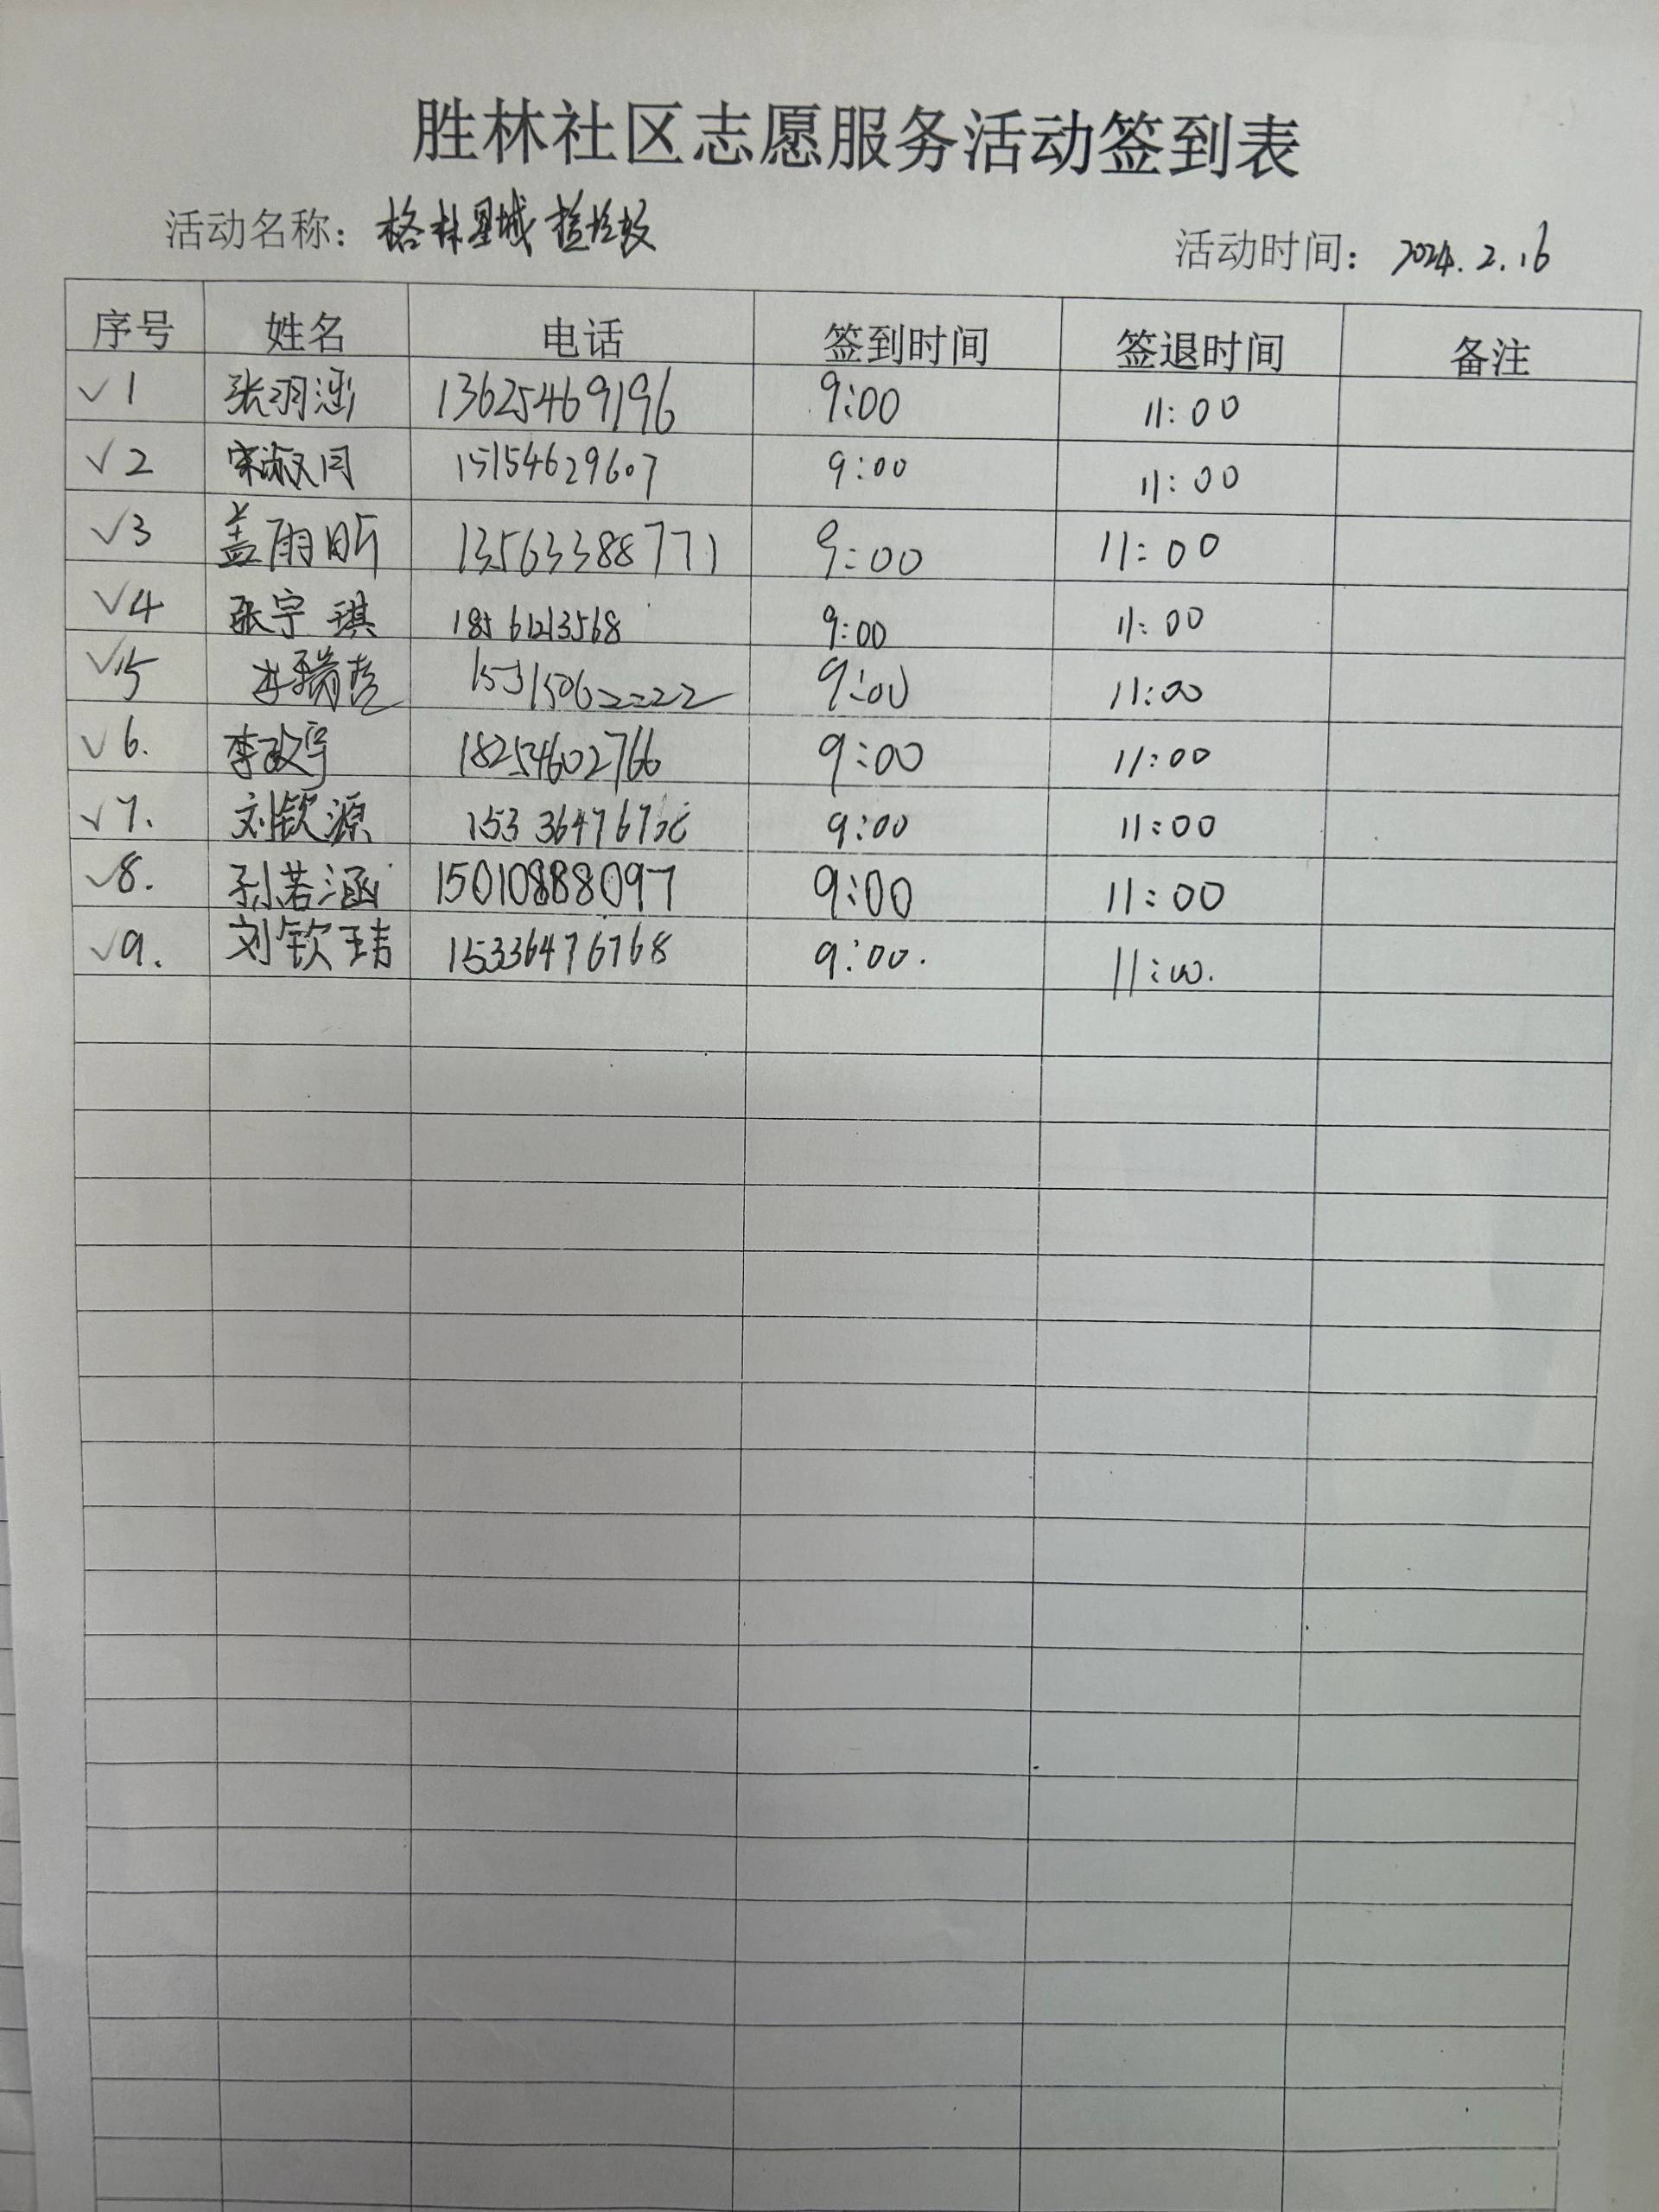 胜林社区志愿服务活动签到表
活动名称：格林星城捡垃圾
活动时间：2024.2.16
序号 姓名 电话 签到时间 签退时间 备注
√1 张羽涵 13625469196 9:00 11:00
√2 宋淑月 15154629607 9:00 11:00
√3 盖雨昕 13563388771 9:00 11:00
√4 张宇琪 18561213568 9:00 11:00
√5 李瑞 15315062222 9:00 11:00
√6. 李政宇 18254602766 9:00 11:00
√7. 刘钦源 9:00 11:00
√8. 孙若涵 15010888097 9:00 11:00
√9. 刘钦玮 15336476768 9:00. 11:00.